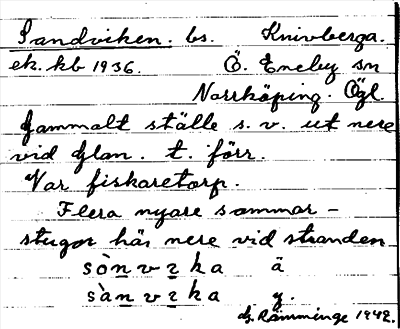 Sandviken. bs. Knivberga.
ek. kb 1936. Ö. Eneby sn
Norrköping. Ögl.
Gammalt ställe s. v. ut nere
vid Glan. t. förr.
Var fiskaretorp.
Flera nyare sommar-
stugor här nere vid stranden
sònvɛka ä
sànvɛka y.
G. Ramminge 1942.